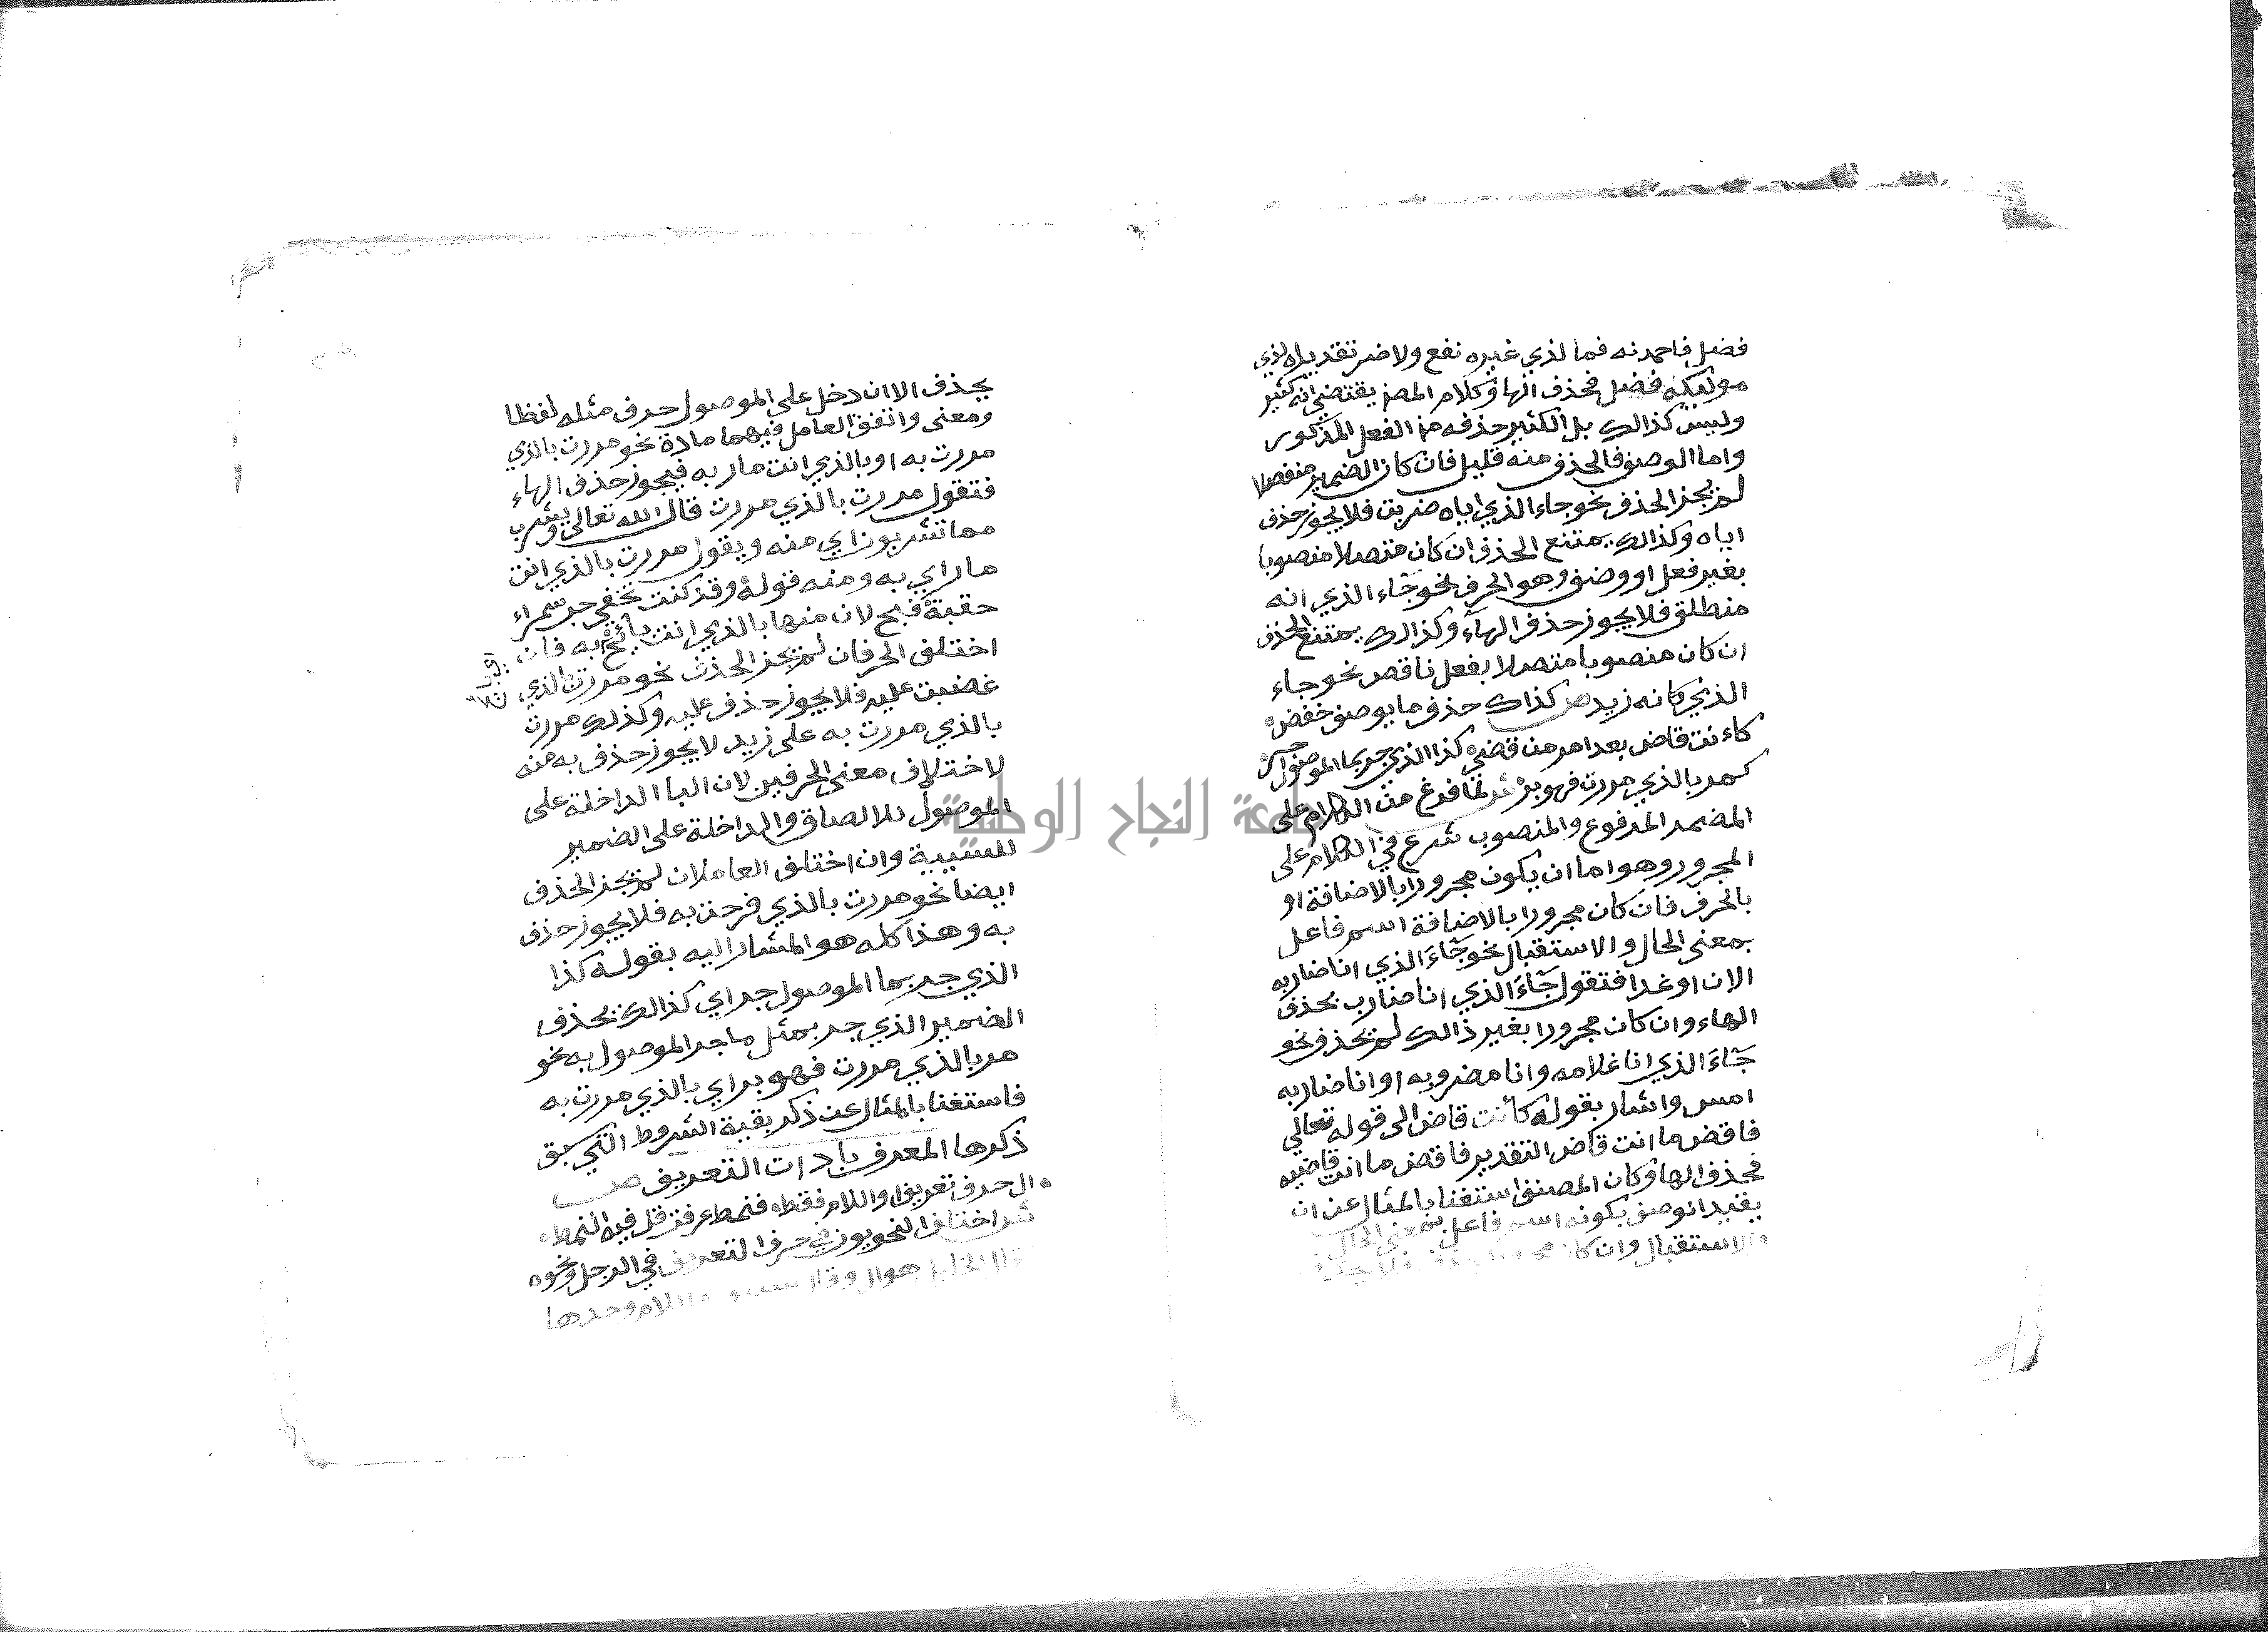 فضل فاحمدنه فما لذي غيره نفع ولا ضرر تقديره الذي
موليكه فضل فحذف الها وكلام المص يقتضي انه كثير
وليس كذالك بل الكثير حذفه من الفعل المذكور
واما الوصف فالحذف منه قليل فان كان الضمير منفصلا
لم يجز الحذف نحو جاء الذي اياه ضربت فلا يجوز حذف
اياه وكذالك يمتنع الحذف ان كان متصلا منصوبا
بغير فعل او وصف وهو الحرف نحو جاء الذي انه
منطلق فلا يجوز حذف الهاء وكذالك يمتنع الحذف
ان كان منصوبا متصلا بفعل ناقص نحو جاء
الذي كانه زيد ص كذاك حذف ما بوصف خفض
كانت قاض بعد امر من قضى كذا الذي جر بما الموصول جر
كمر بالذي مررت فهو بر ش لما فرغ من الكلام على
المضمر المرفوع والمنصوب شرع في الكلام على
المجرور وهو اما ان يكون مجرورا بالاضافة او
بالحرف فان كان مجرورا بالاضافة اسم فاعل
بمعنى الحال والاستقبال نحو جاء الذي انا ضاربه
الان او غدا فتقول جاء الذي انا ضارب بحذف
الهاء وان كان مجرورا بغير ذالك لم يحذف نحو
جاء الذي انا غلامه وانا مضروبه او انا ضاربه
امس واشار بقوله كانت قاض الى قوله تعالى
فاقض ما انت قاض التقدير فاقض ما انت قاضيه
فحذف الها وكان المصنف استغنا بالمثال عن ان
يقيد الوصف بكونه اسم فاعل بمعنى الحال
والاستقبال وان كان
يحذف الا ان دخل على الموصول حرف مثله لفظا
ومعنى واتفق العامل فيهما مادة نحو مررت بالذي
مررت به او بالذي انت مار به فيجوز حذف الهاء
فتقول مررت بالذي مررت قال الله تعالى ويشرب
مما تشربون اي منه ويقول مررت بالذي انت
مار اي به ومنه قوله وقد كنت تخفي حب سمراء
حقبة فبح لان منها بالذي انت بائح به فان
اختلف الحرفان لم يجز الحذف نحو مررت بالذي
غضبت عليه فلا يجوز حذف عليه وكذلك مررت
بالذي مررت به على زيد لا يجوز حذف به منه
لاختلاف معنى الحرفين لان البا الداخلة على
الموصول للالصاق والداخلة على الضمير
للسببية وان اختلف العاملان لم يجز الحذف
ايضا نحو مررت بالذي فرحت به فلا يجوز حذف
به وهذا كله هو المشار اليه بقوله كذا
الذي جر بما الموصول جر اي كذالك يحذف
الضمير الذي جر بمثل ما جر الموصول به نحو
مر بالذي مررت فهو بر اي بالذي مررت به
فاستغنا بالمثال عن ذكر بقية الشروط التي سبق
ذكرها المعرف بادات التعريف ص
ال حرف تعريف او اللام فقط فنمط عرفت قل فيه النمط
ش اختلف النحويون في حرف التعريف في الرجل ونحوه
هو ال وقال اللام وحدها
جامعة النجاح الوطنية